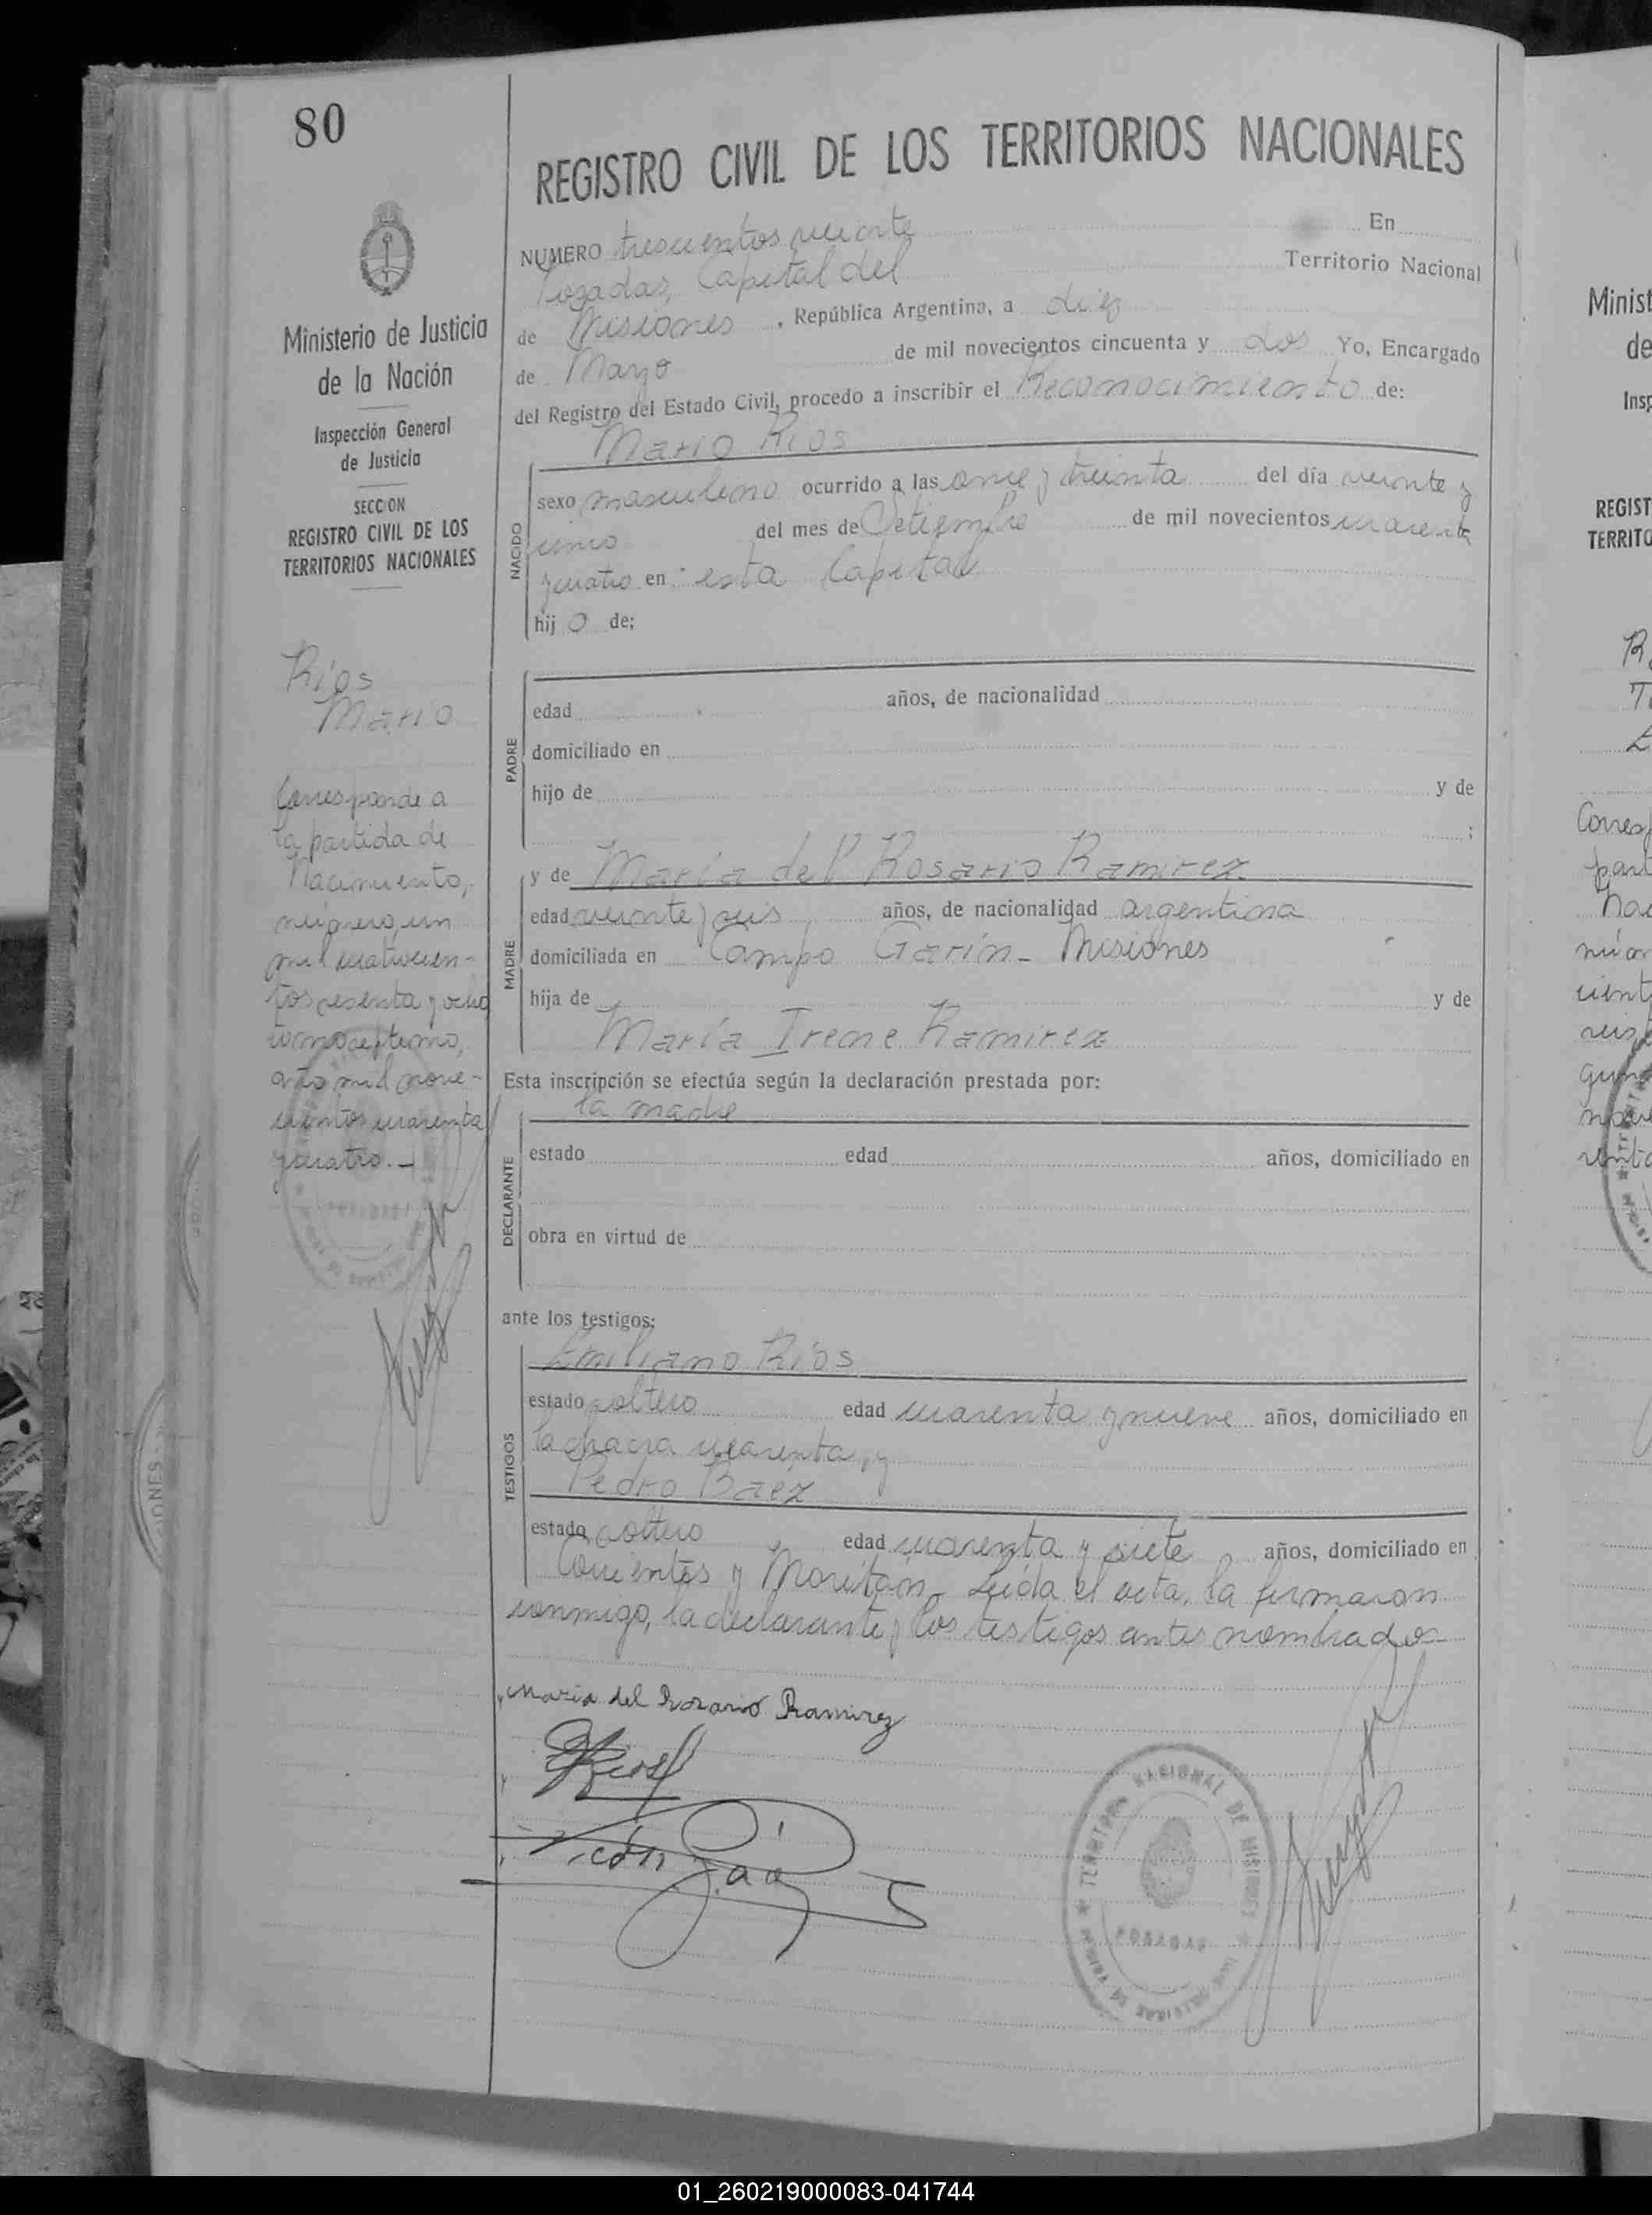 80
REGISTRO CIVIL DE LOS TERRITORIOS NACIONALES
NUMERO trescientos veinte En
Posadas, Capital del Territorio Nacional
de Misiones, República Argentina, a diez
de Mayo de mil novecientos cincuenta y dos Yo, Encargado
del Registro del Estado Civil, procedo a inscribir el Reconocimiento de:
Mario Ríos
NACIDO
sexo masculino ocurrido a las once y treinta del día veinte y
uno del mes de Setiembre de mil novecientos cuarenta
y cuatro en esta Capital
hijo de;
PADRE
edad años, de nacionalidad
domiciliado en
hijo de y de
;
MADRE
y de María del Rosario Ramirez
edad veinte y seis años, de nacionalidad argentina
domiciliada en Campo Garín - Misiones
hija de y de
María Irene Ramirez
Esta inscripción se efectúa según la declaración prestada por:
la madre
DECLARANTE
estado edad años, domiciliado en
obra en virtud de
ante los testigos:
TESTIGOS
Emiliano Ríos
estado soltero edad cuarenta y nueve años, domiciliado en
la chacra cuarenta, y
Pedro Baez
estado soltero edad cuarenta y siete años, domiciliado en
Corrientes y Moritán - Leída el acta, la firmaron
conmigo, la declarante y los testigos antes nombrados
Maria del Rosario Ramirez
TERRITORIO NACIONAL DE MISIONES
POSADAS
Ministerio de Justicia
de la Nación
Inspección General
de Justicia
SECCION
REGISTRO CIVIL DE LOS
TERRITORIOS NACIONALES
Ríos
Mario
Corresponde a
la partida de
Nacimiento,
número un
mil cuatrocien-
tos sesenta y ocho
tomo septimo,
año mil nove-
cientos cuarenta
y cuatro.-
Minist
de
Insp
REGIST
TERRITO
Corresp
part
Nac
núm
cient
01_260219000083-041744